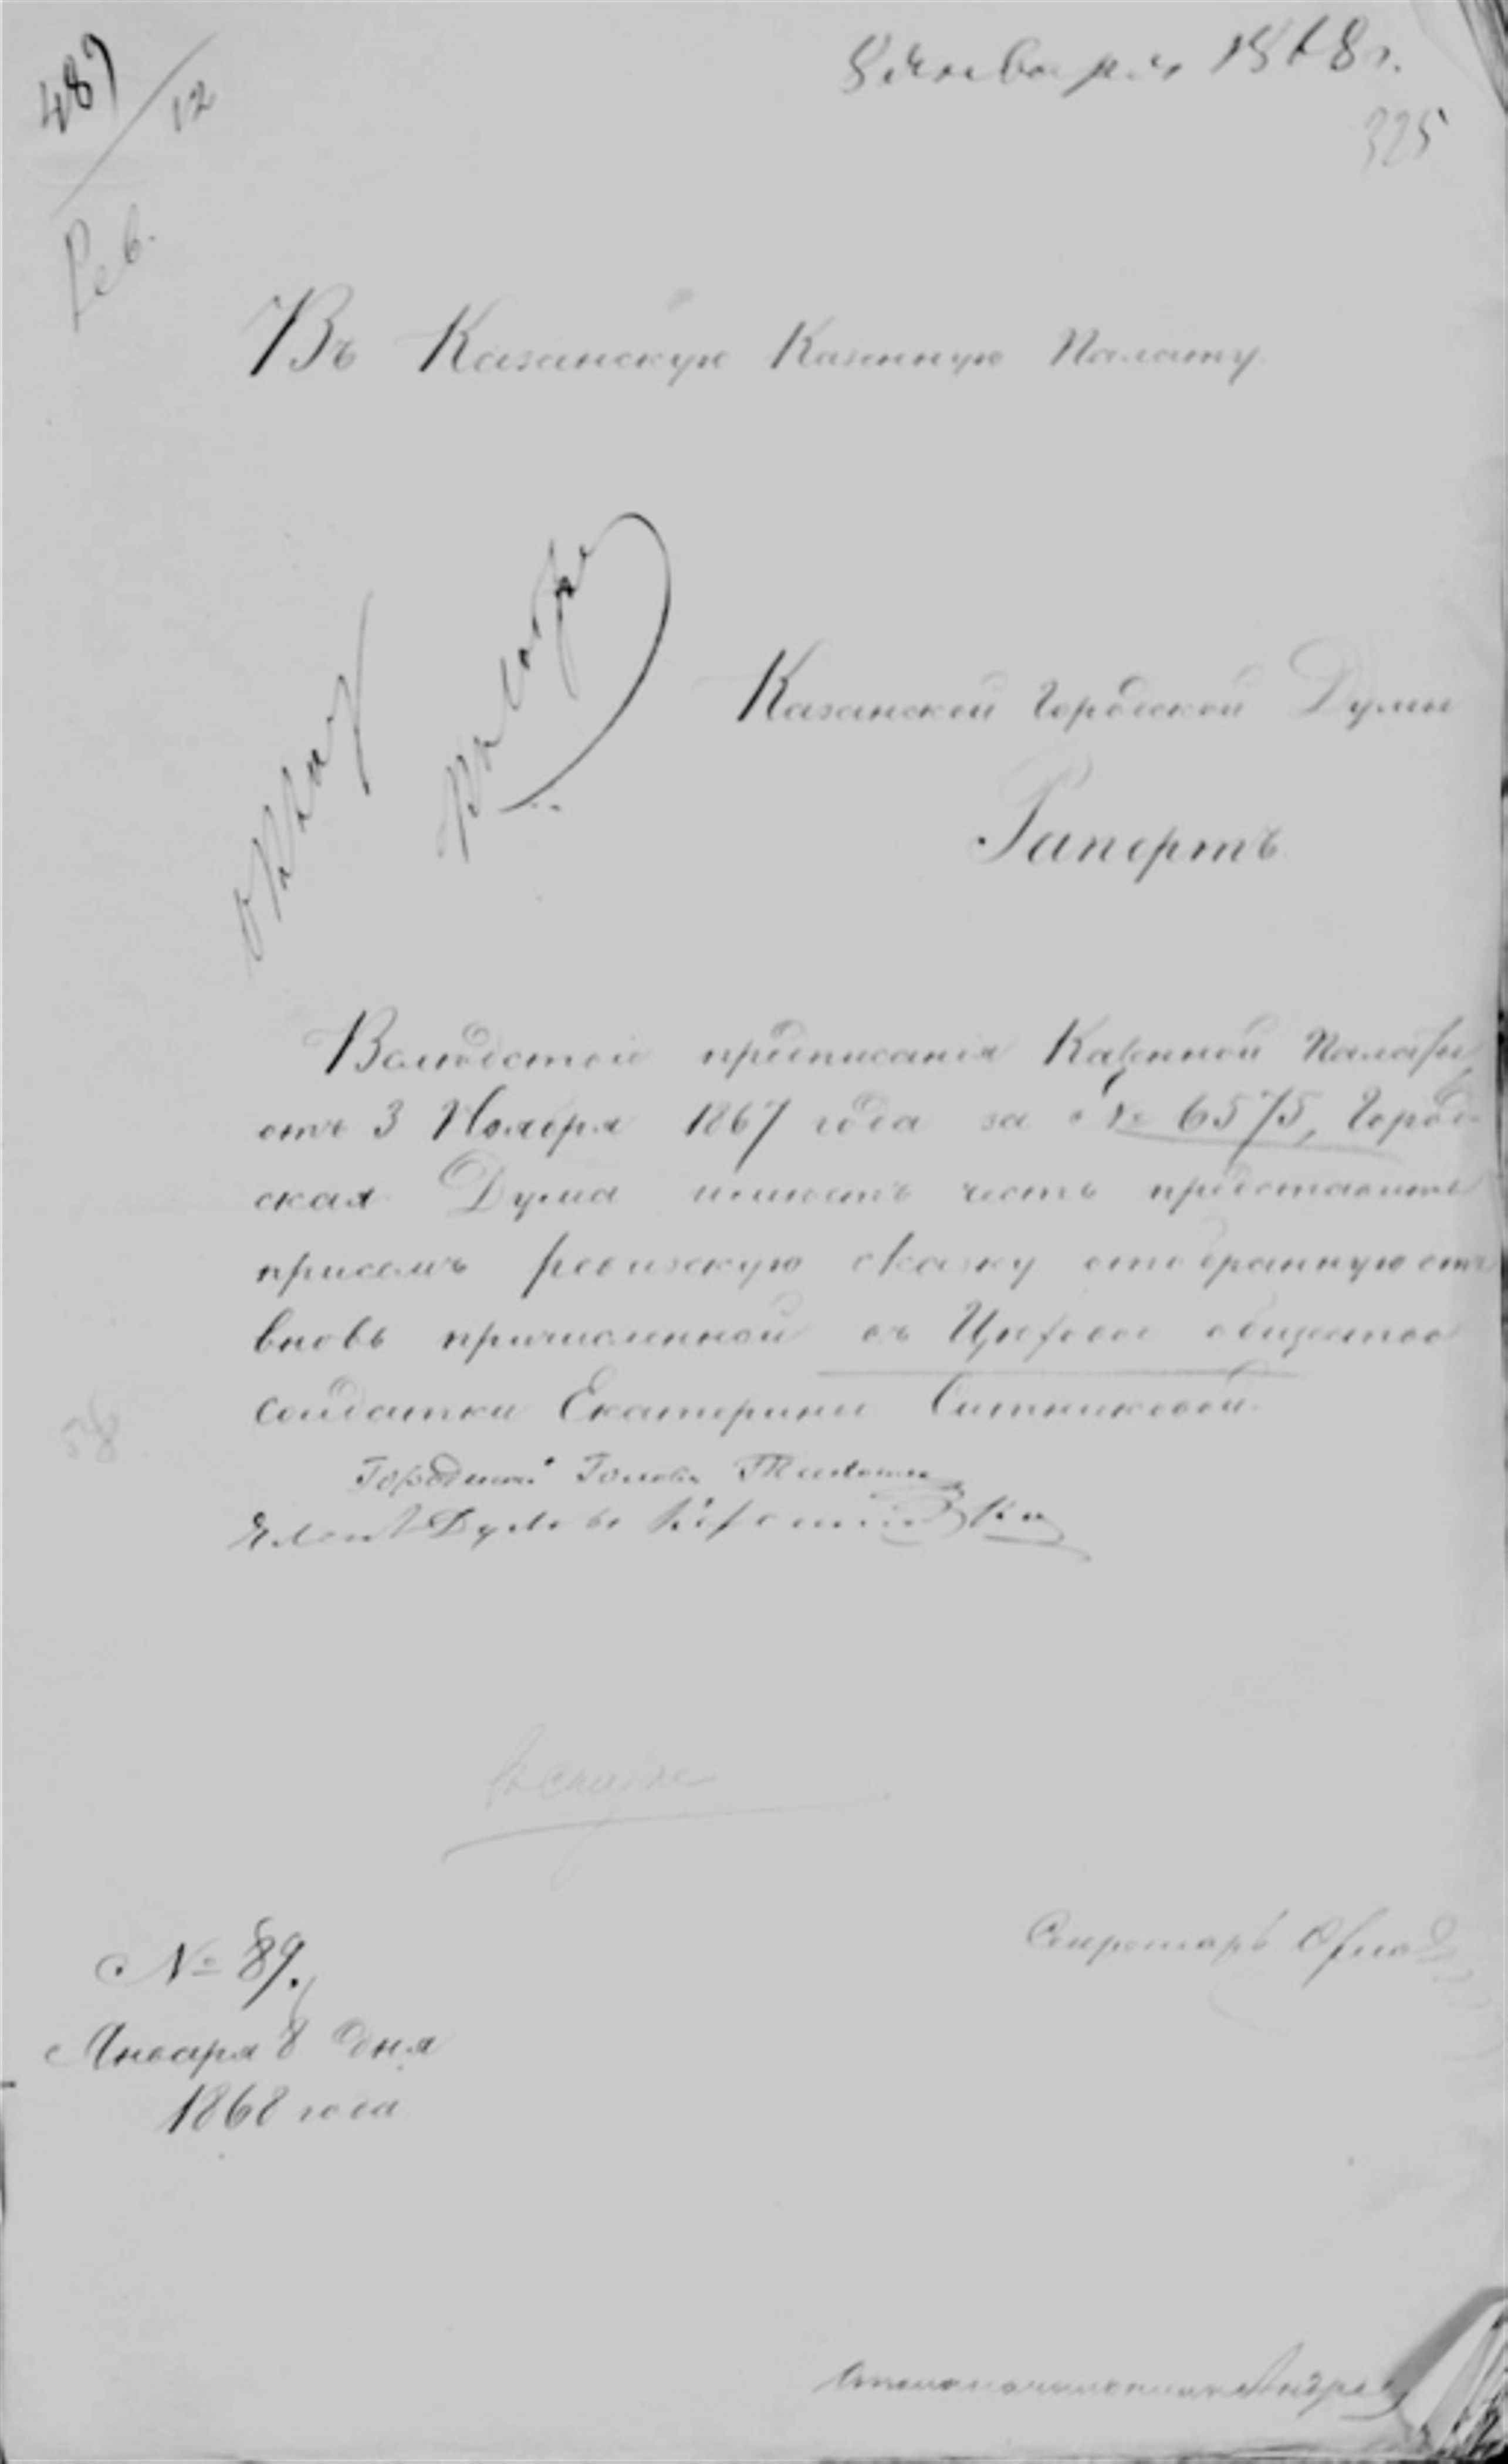 8 Января 1868 г.
487
12
325
Рев.
Въ Казанскую Казенную Палату
Казанской Городской Думы
Рапортъ
Вследствіе предписанія Казенной Палаты
отъ 3 Ноября 1867 года за № 6575, Город-
ская Дума имѣетъ честь представить
при семъ ревизскую сказку отобранную отъ
вновь причисленной въ Цеховое общество
солдатки Екатерины Ситниковой.
Городской Голова
Думы
№ 89.
Секретарь
Января 8 дня
1868 года
Столоначальникъ